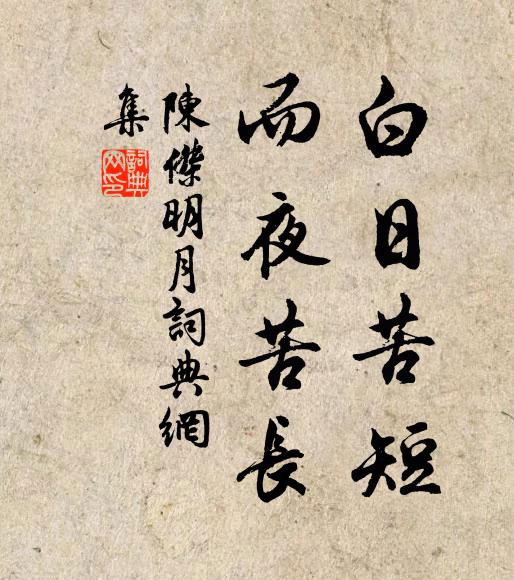 白日苦短
而夜苦長
陳傑明月詞典網
集
詞典网印